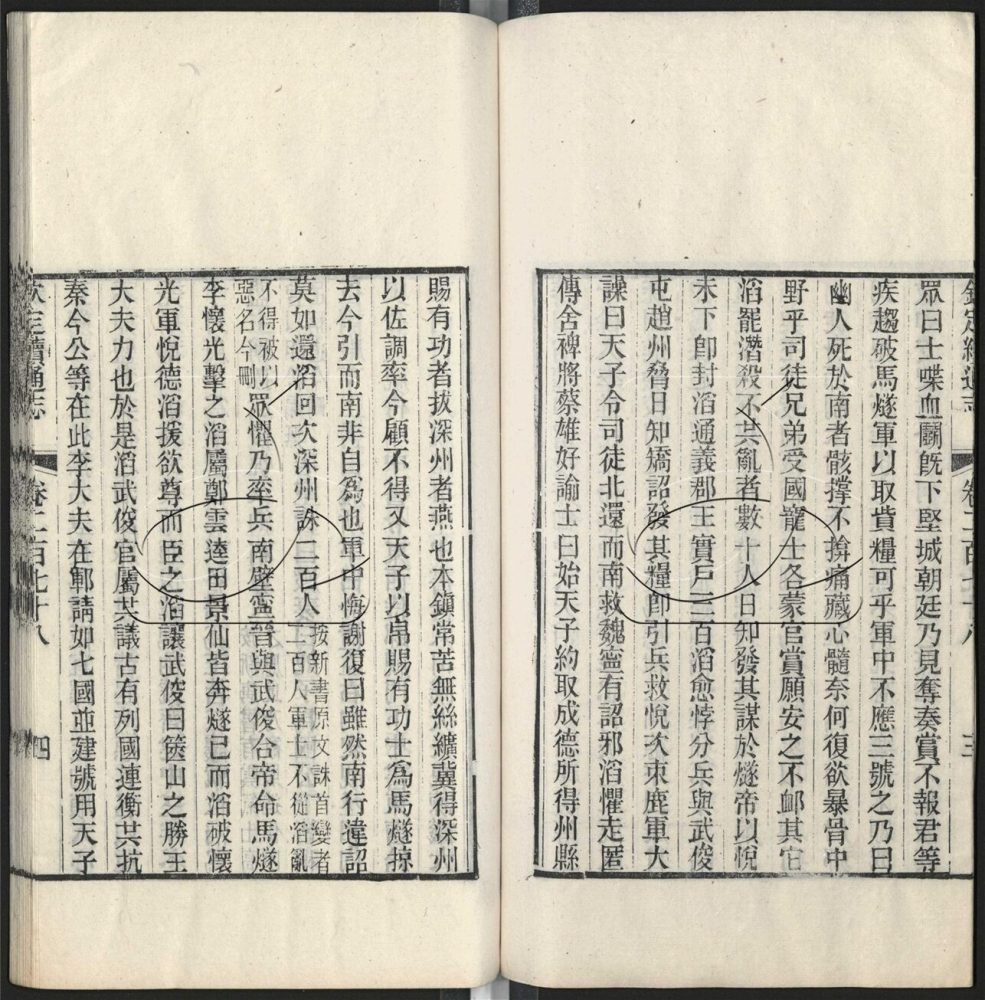 欽定續通志　卷二百七十八　三
眾曰士喋血鬭旣下堅城朝廷乃見奪奏賞不報君等
疾趨破馬燧軍以取貲糧可乎軍中不應三號之乃曰
幽人死於南者骸撐不揜痛藏心髓奈何復欲暴骨中
野乎司徒兄弟受國寵士各蒙官賞願安之不䘏其它
滔罷潛殺不共亂者數十人日知發其謀於燧帝以悅
未下卽封滔通義郡王實戶三百滔愈悖分兵與武俊
屯趙州脅日知矯詔發其糧卽引兵救悅次束鹿軍大
譟曰天子令司徒北還而南救魏寧有詔邪滔懼走匿
傳舍裨將蔡雄好諭士曰始天子約取成德所得州縣
賜有功者拔深州者燕也本鎭常苦無絲纊冀得深州
以佐調率今顧不得又天子以帛賜有功士爲馬燧掠
去今引而南非自爲也軍中悔謝復曰雖然南行違詔
莫如還滔回次深州誅二百人按新書原文誅首變者二百人軍士不從滔亂
不得被以惡名今刪眾懼乃率兵南壁寧晉與武俊合帝命馬燧
李懷光擊之滔屬鄭雲逵田景仙皆奔燧已而滔破懷
光軍悅德滔援欲尊而臣之滔讓武俊曰篋山之勝王
大夫力也於是滔武俊官屬共議古有列國連衡共抗
秦今公等在此李大夫在鄆請如七國並建號用天子
欽定續通志　卷二百七十八　四